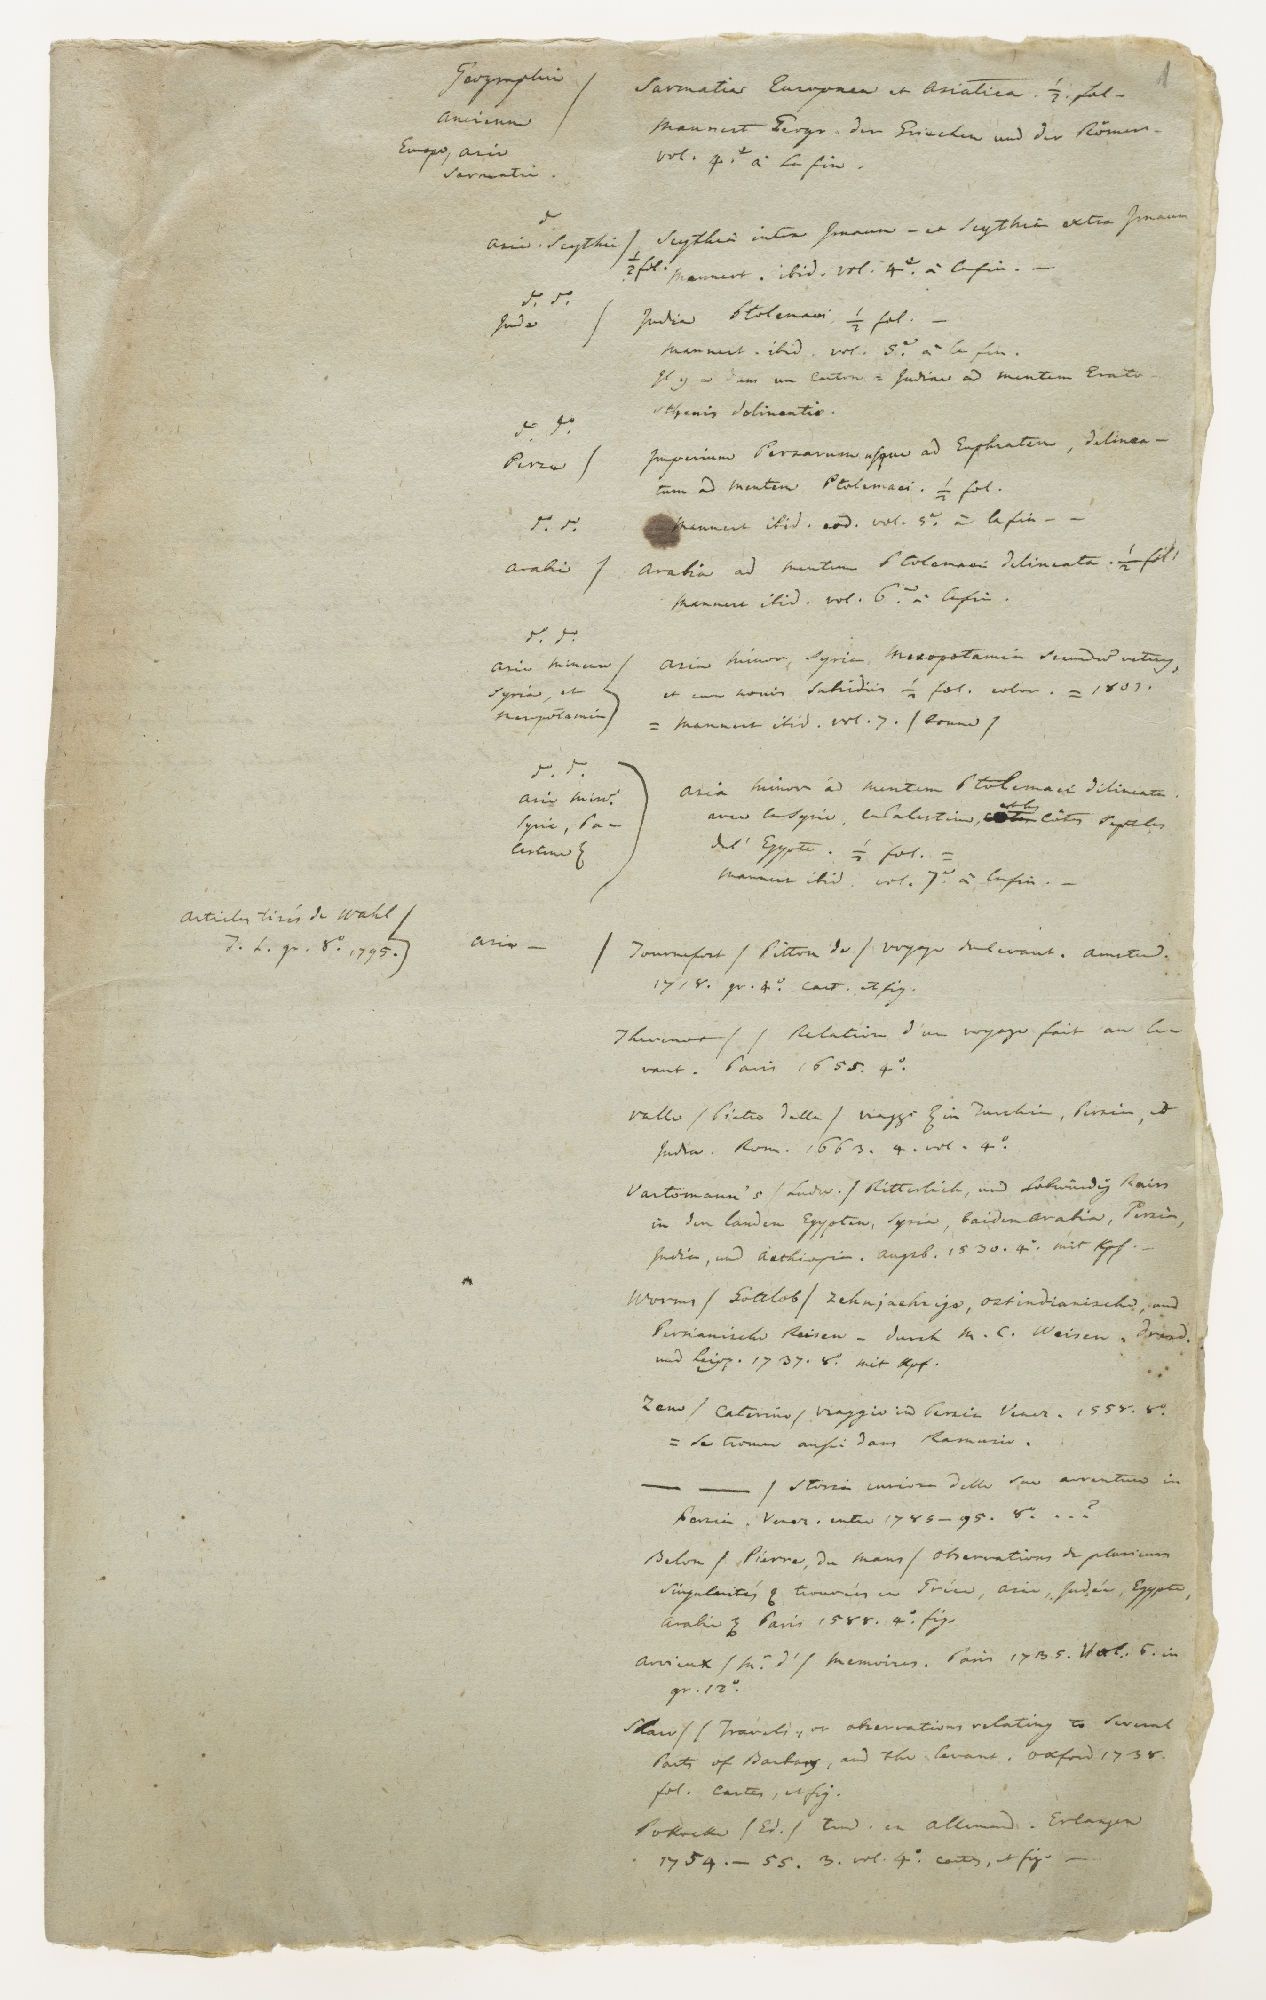 1
Geographie
ancienne
Europe, Asie
Sarmatie.
Sarmatia Europaea et Asiatica. ½. fol-
Mannert Geogr. der Griechen und der Römer-
vol. 4.º à la fin.
dº
Asie. Scythie
Scythia intra Imaum - et Scythia extra Imaum
½ fol. Mannert. ibid. vol. 4º. à la fin. -
dº. dº.
Inde
India Ptolemaei ½ fol. -
Mannert. ibid. vol. 5º. à la fin.
Il y a dans un carton = Indiae ad mentem Erato-
sthenis delineatio.
dº. dº.
Perse
Imperium Persarum usque ad Euphratem, delinea-
tum ad mentem Ptolemaei. ½ fol.
Mannert ibid. eod. vol. 5º. à la fin - -
dº. dº.
Arabie
Arabia ad mentem Ptolemaei delineata. ½ fol.
Mannert ibid. vol. 6º. à la fin.
dº. dº.
Asie mineure
Syrie, et
Mesopotamie
Asia minor, Syria, Mesopotamia secundum veteres,
et cum novis subsidiis ½ fol. color. = 1803.
= Mannert ibid. vol. 7. /
dº. dº.
Asie minre.
Syrie, Pa-
lestine &
Asia minor ad mentem Ptolemaei delineata.
avec la Syrie, la Palestine, et les côtes septles
de l'Egypte. ½ fol. =
Mannert ibid. vol. 7º à la fin. -
Articles tirés de Wahl
T. I. gr. 8º. 1795.
Asie -
Tournefort / Pitton de / voyage du levant. Amsterd.
1718. gr. 4º. cart. et fig.
Thevenot / / Relation d'un voyage fait au le-
vant. Paris 1655. 4º.
Valle / Pietro della / viaggi & in Turchia, Persia, ed
India. Rom. 1663. 4. vol. 4º.
Vartomann's / Ludw. / Ritterlich, und Lobwürdig Reiss
in den landen Egypten, Syria, baiden Arabia, Persia,
India, und Aethiopia. Augsb. 1530. 4º. mit Kpf. -
Worms / Gottlob / zehnjaehrige, ostindianische, und
Persianische Reisen - durch M. C. Weisen. Dresd.
und Leipz. 1737. 8º. mit Kpf.
Zeno / Caterino / Viaggio in Persia Venez. 1558. 8º.
= se trouve aussi dans Ramusio.
— — / Storia curiosa delle sue avventure in
Persia. Venez. entre 1785-95. 8º. ...?
Belon / Pierre, du Mans / observations de plusieurs
singularités & trouvées en Grèce, Asie, Judée, Egypte,
Arabie & Paris 1588. 4º. fig.
Arvieux / Mr. d' / Memoires. Paris 1735. Vol. 6. in
gr. 12º.
Shaw / / Travels, or observations relating to several
Parts of Barbary, and the levant. Oxford 1738.
fol. cartes, et fig.
Pokocke / Ed. / trad. en Allemand. Erlangen
1754. - 55. 3. vol. 4º. cartes, et fig. -